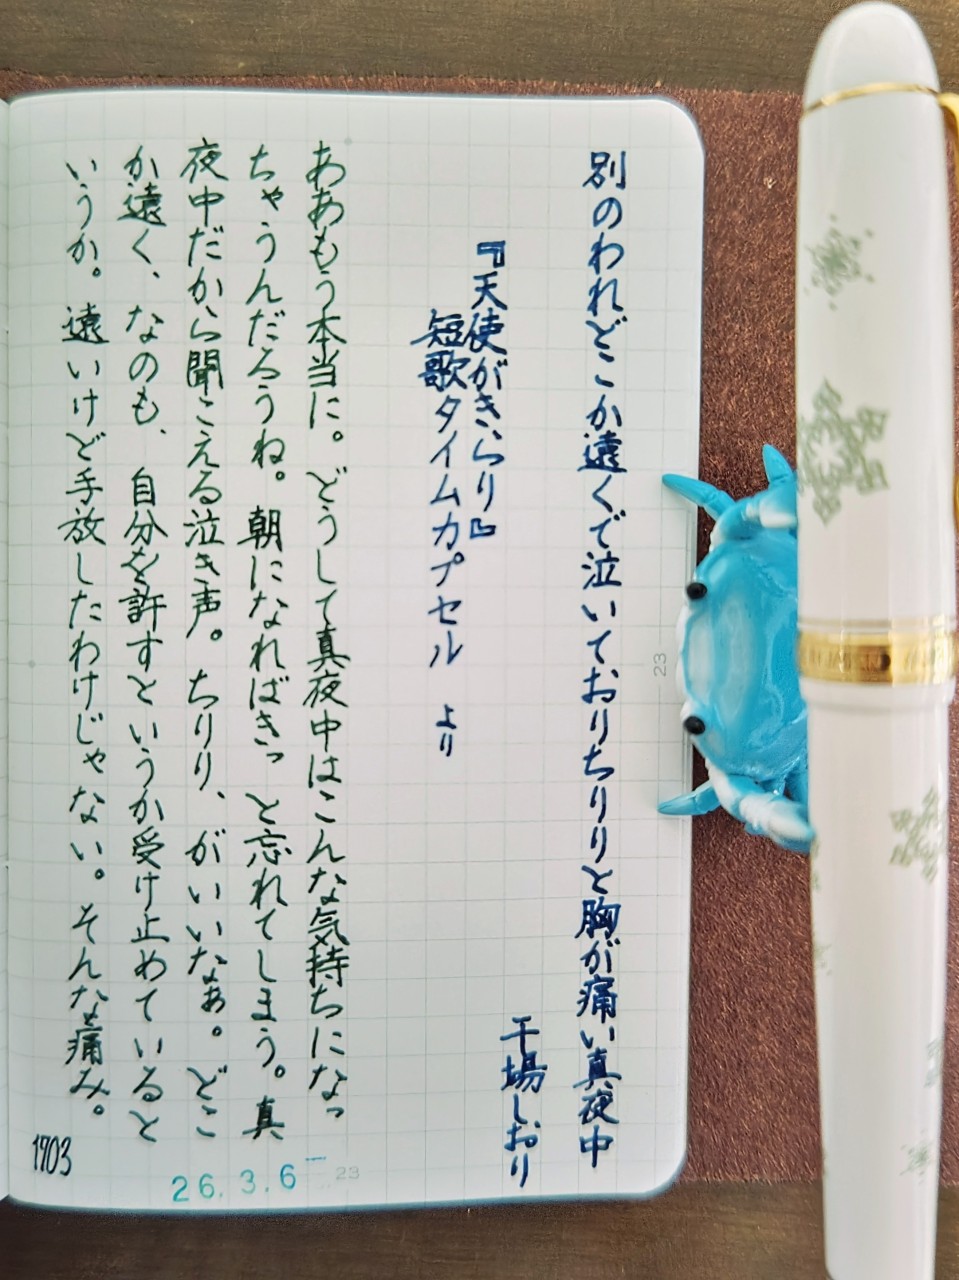 別のわれどこか遠くで泣いておりちりりと胸が痛い真夜中
干場しおり
『天使がきらり』
短歌タイムカプセル より
ああもう本当に。どうして真夜中はこんな気持ちになっ
ちゃうんだろうね。朝になればきっと忘れてしまう。真
夜中だから聞こえる泣き声。ちりり、がいいなぁ。どこ
か遠く、なのも、自分を許すというか受け止めていると
いうか。遠いけど手放したわけじゃない。そんな痛み。
1703
26.3.6
23
23